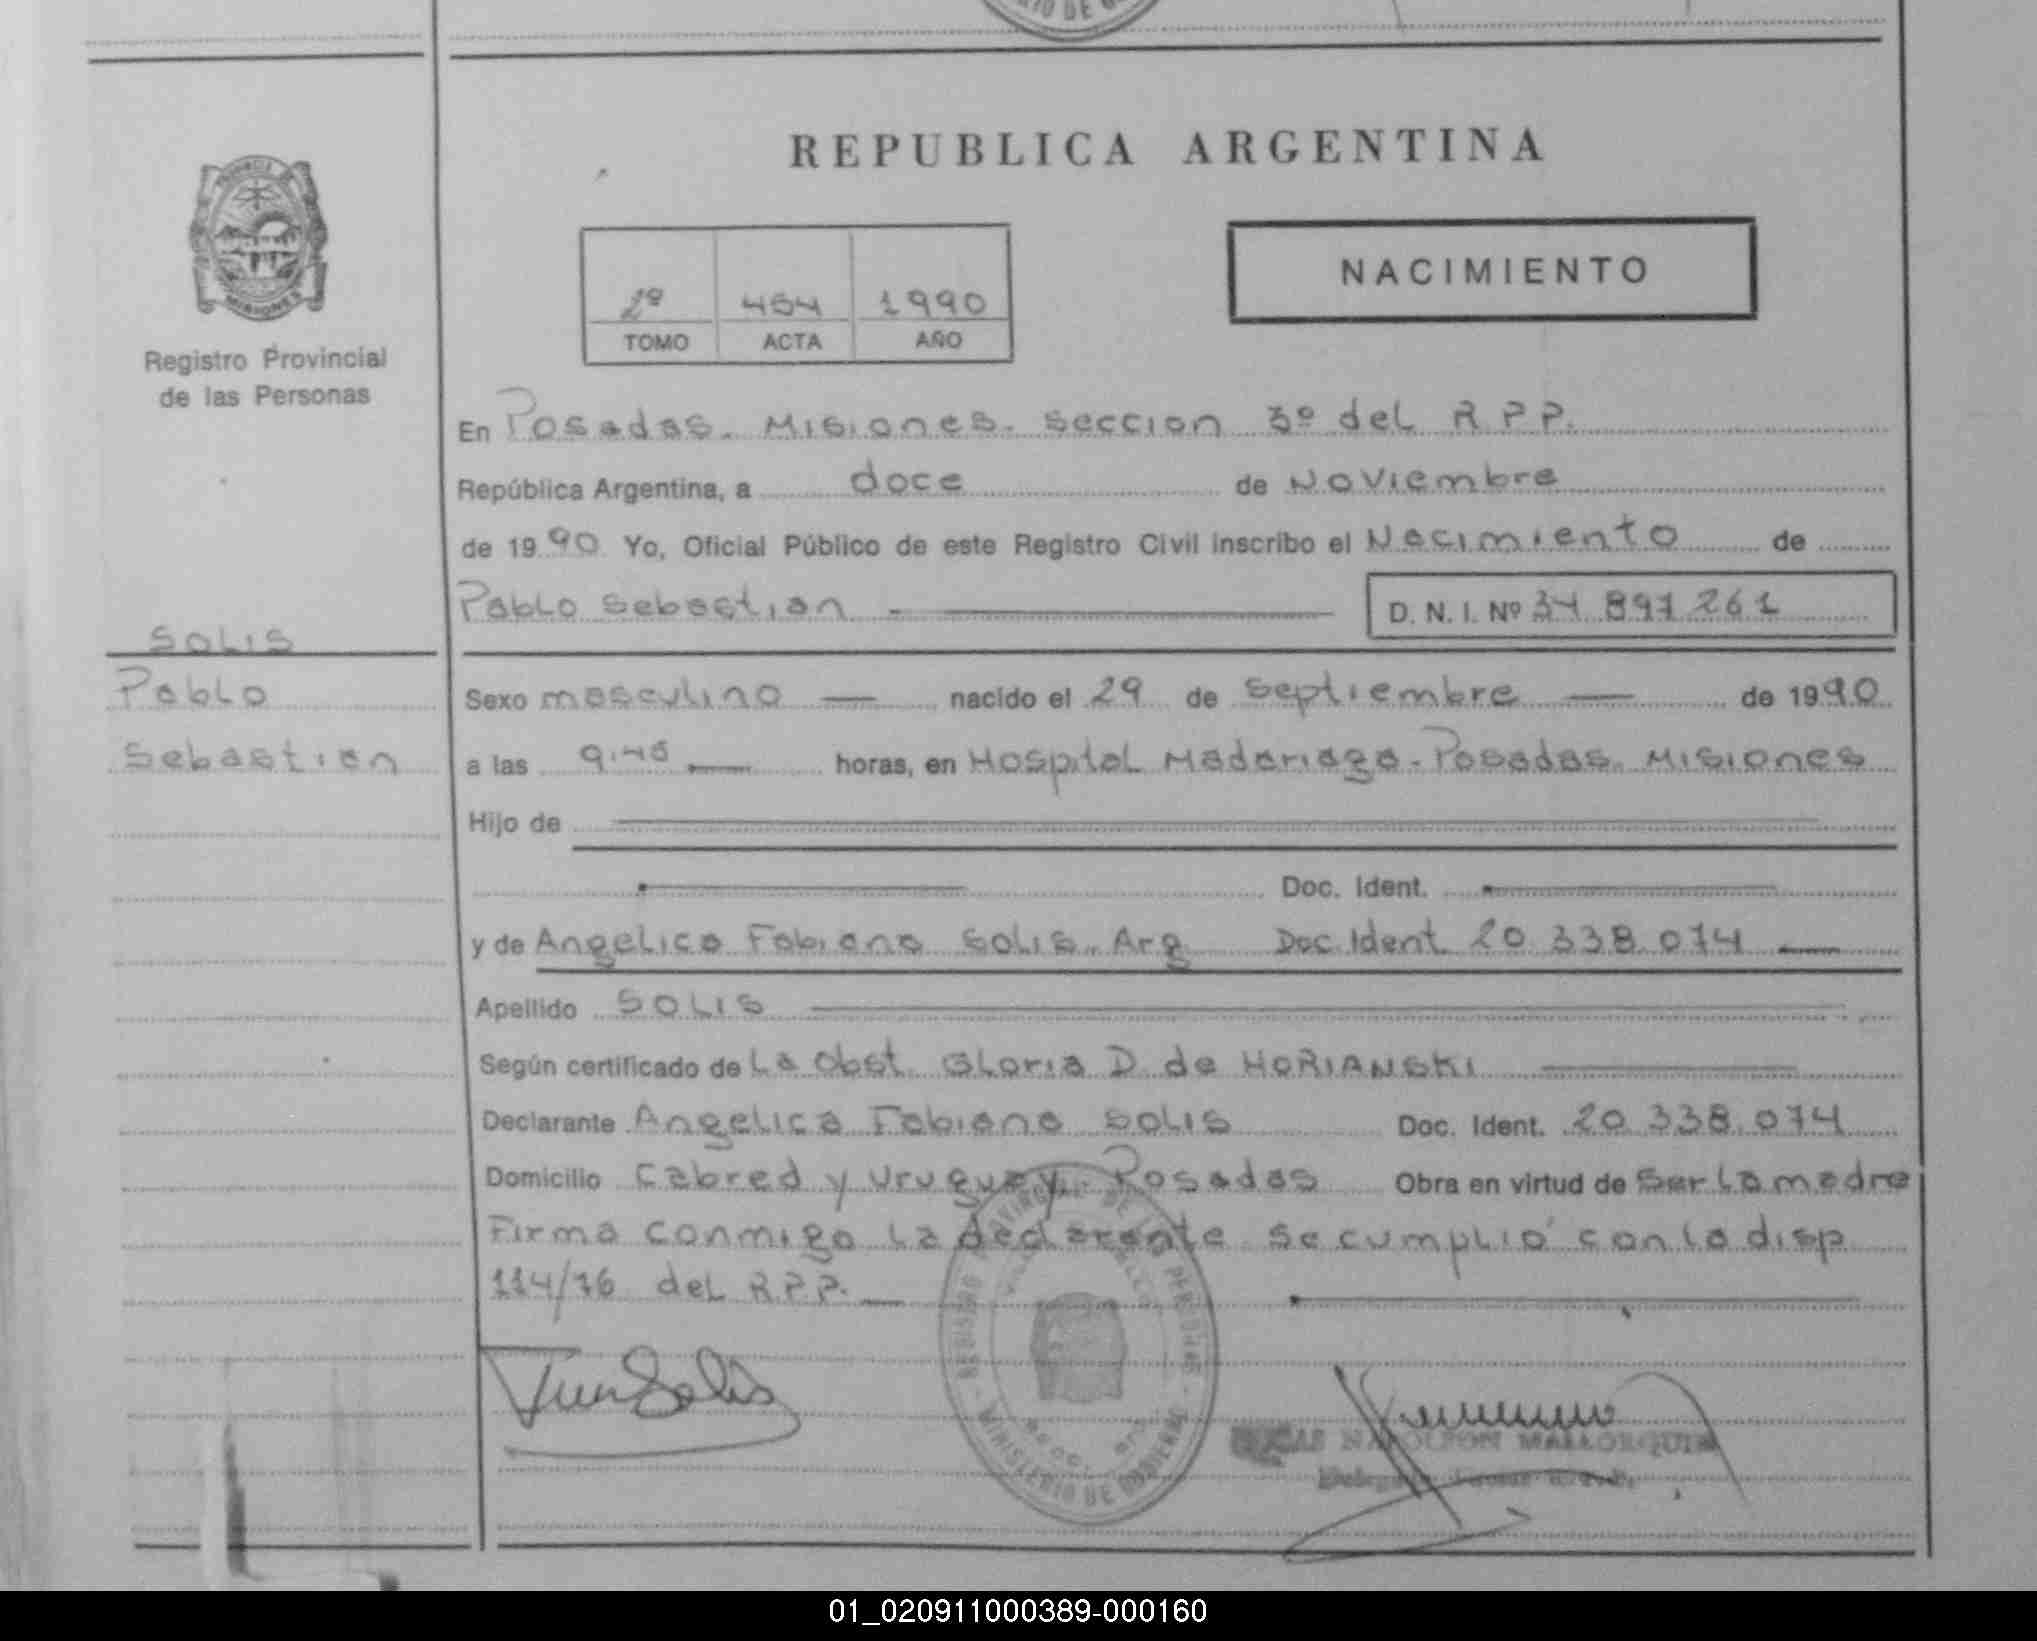 REPUBLICA ARGENTINA
NACIMIENTO
2º 454 1990
TOMO ACTA AÑO
Registro Provincial
de las Personas
En Posadas. Misiones. seccion 3º del R.P.P.
República Argentina, a doce de Noviembre
de 1990 Yo, Oficial Público de este Registro Civil inscribo el Nacimiento de
Pablo Sebastian
D. N. I. Nº 34 891 261
SOLIS
Pablo
Sebastian
Sexo masculino nacido el 29 de septiembre de 1990
a las 9.45 horas, en Hospital Madariaga. Posadas. Misiones
Hijo de
Doc. Ident.
y de Angelica Fabiana Solis. Arg. Doc. Ident 20.338.074
Apellido SOLIS
Según certificado de La Obst. Gloria D. de HORIANSKI
Declarante Angelica Fabiana Solis Doc. Ident. 20.338.074
Domicilio Cabred y Uruguay. Posadas Obra en virtud de ser la madre
Firma conmigo la declarante se cumplió con la disp
114/76 del R.P.P.
REGISTRO PROVINCIAL DE LAS PERSONAS
MINISTERIO DE GOBIERNO
Solis
NAPOLEON
01_020911000389-000160